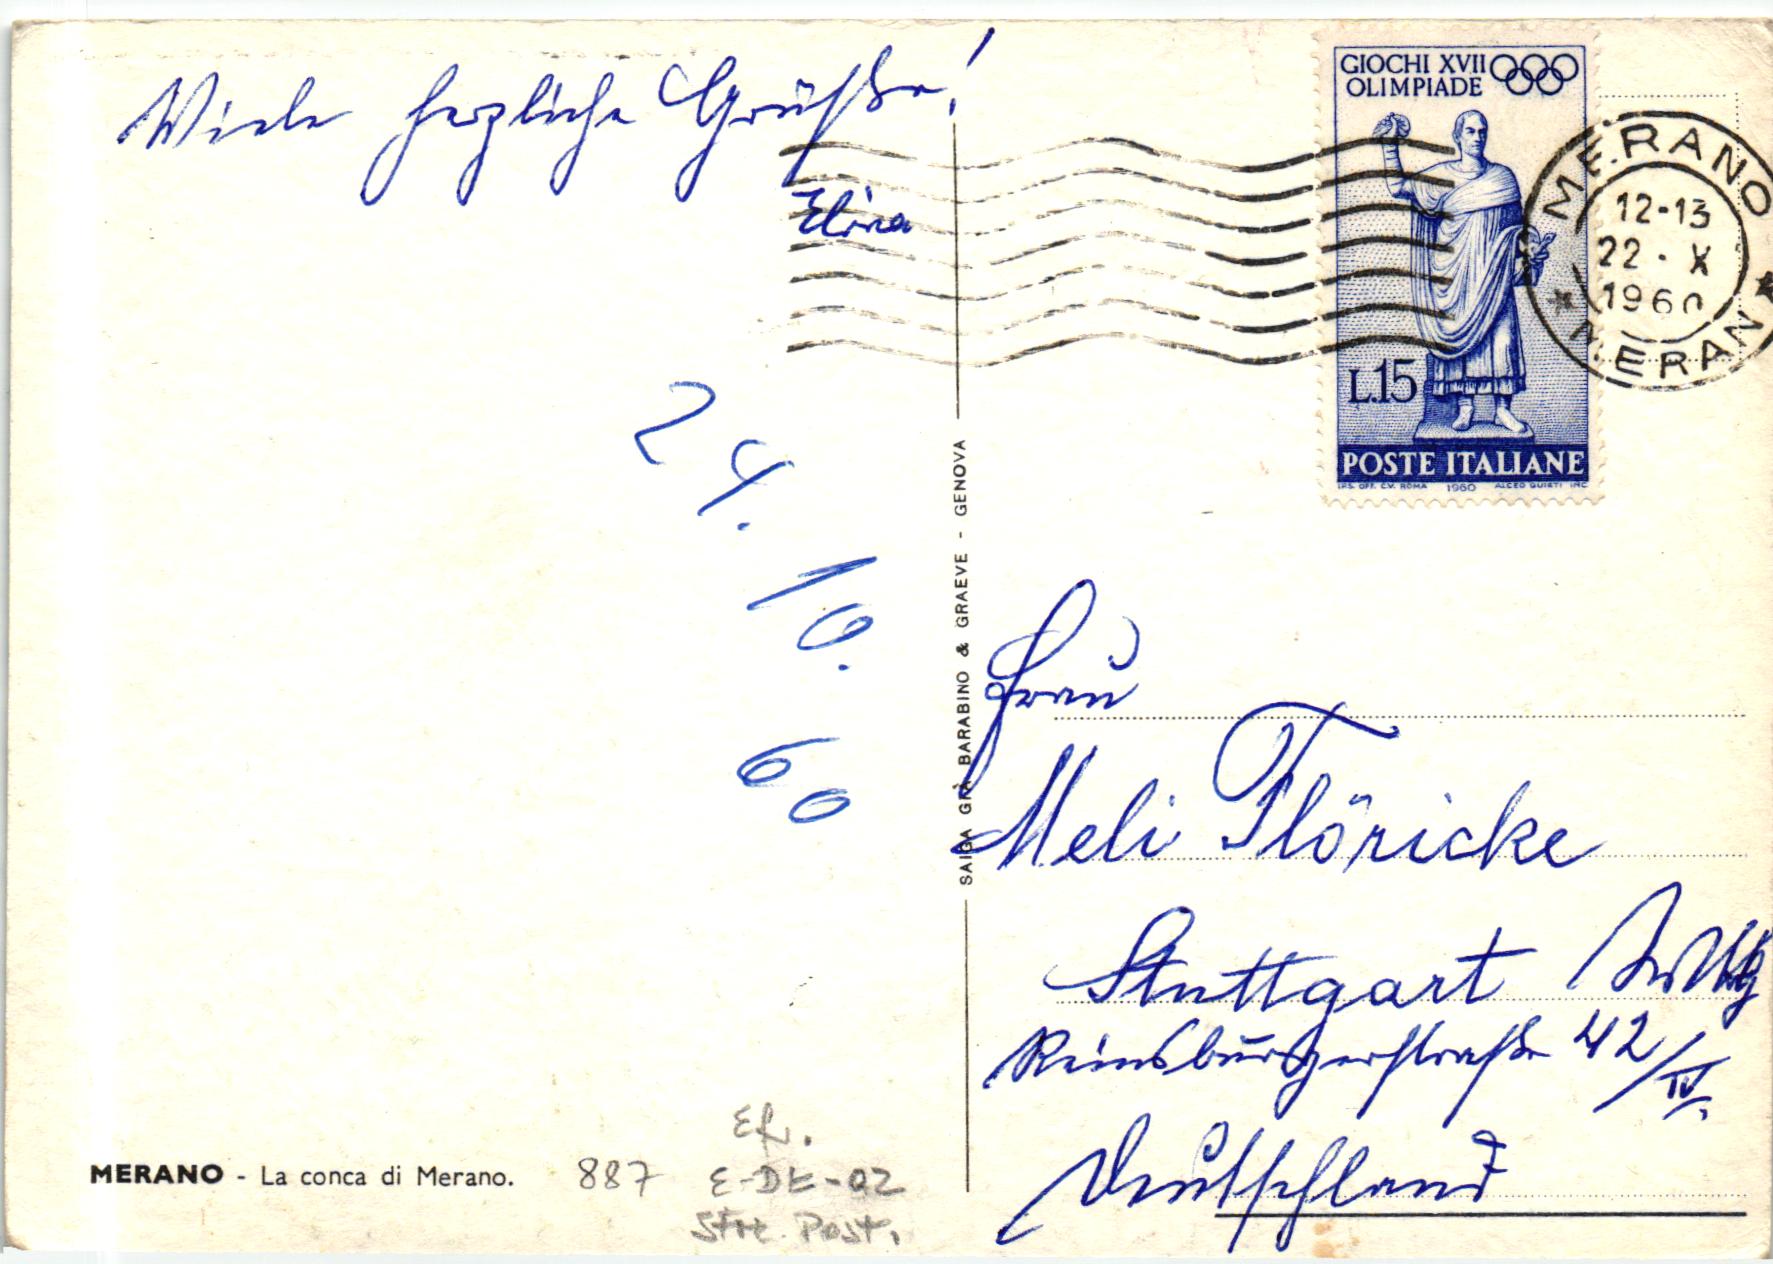 Viele herzliche Grüße!
24.
10.
60
MERANO - La conca di Merano.
887
E-DE-02
SAIGA GIÀ BARABINO & GRAEVE - GENOVA
GIOCHI XVII
OLIMPIADE
L.15
POSTE ITALIANE
I.P.S. OFF. C.V. ROMA 1960 ALCEO QUIETI INC.
MERANO
12-13
22·X
1960
MERAN
Frau
Meli Flöricke
Stuttgart
Reinsburgerstraße 42/IV.
Deutschland